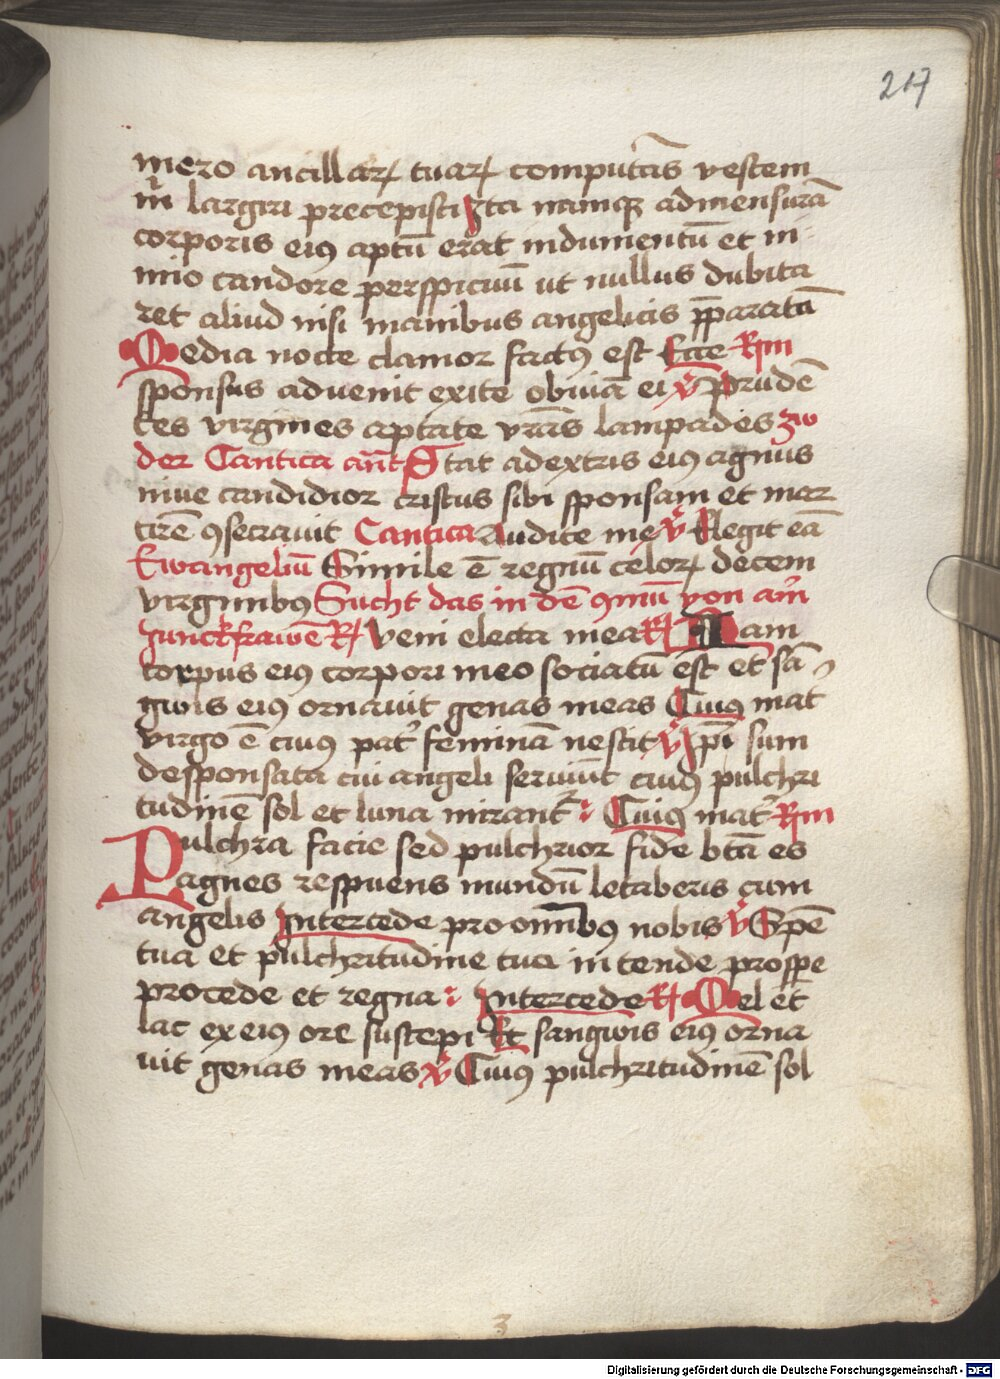 217
mero ancillaꝝ tuaꝝ computās vestem
m̄ largiri precepisti Ita namqꝫ admensurā
corporis eiꝰ aptū erat indumentū et ni
mio candore perspicuū ut nullus dubita
ret aliud nisi manibus angelicis p̄paratū
Media nocte clamor factꝰ est Ecce Rm
sponsus aduenit exite obuiā ei ℣ Prudē
tes virgines aptate vr̄as lampades zw
der Cantica ant̄ Stat adextris eiꝰ agnus
niue candidior cristus sibi sponsam et mar
tirē ꝯsecrauit Cantica Audite me ℣ Elegit eā
Ewangeliū Simile ē regnū celoꝝ decem
virginibꝰ Sucht das in dē ꝯmū von am̄
Junckfrawē ℟ Veni electa mea ℟ Iam
corpus eiꝰ corpori meo sociatū est et sā
gwis eiꝰ ornauit genas meas Cuiꝰ mat
virgo ē cuiꝰ pat̄ feminā nescit ℣ Ip̄i sum
desponsata cui angeli seruiūt cuiꝰ pulchri
tudinē sol et luna mirant̄ : Cuiꝰ mat̄ Rm
Pulchra facie sed pulchrior fide bt̄a es
agnes respuens mundū letaberis cum
angelis Intercede pro om̄ibꝰ nobis ℣ Spē
tua et pulchritudine tua intende prospe
procede et regna : Intercede ℟ Mel et
lac ex eiꝰ ore suscepi Et sangwis eiꝰ orna
uit genas meas ℣ Cuiꝰ pulchritudinē sol
3
Digitalisierung gefördert durch die Deutsche Forschungsgemeinschaft - DFG